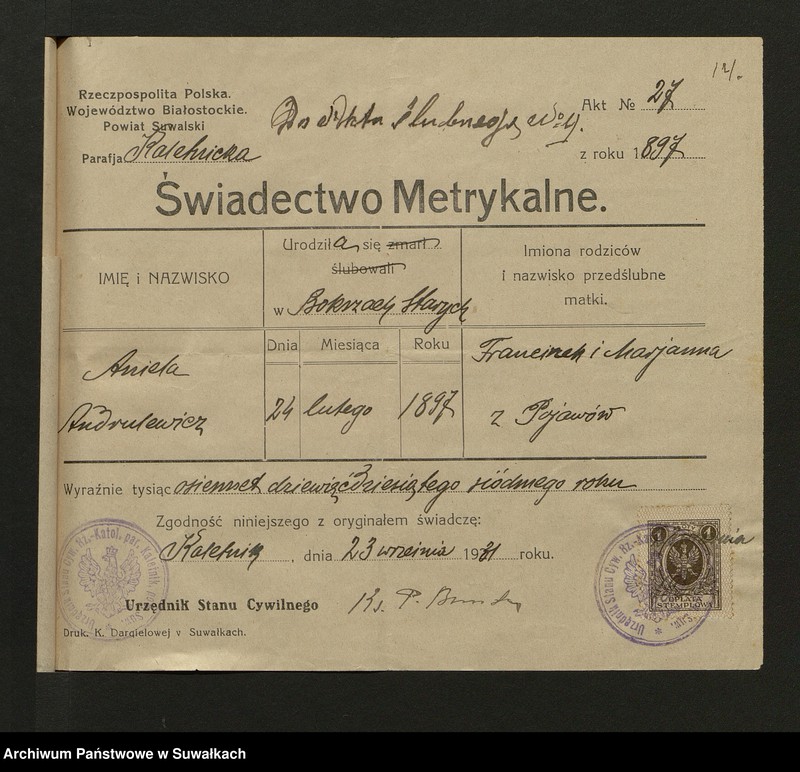 12/.
Rzeczpospolita Polska.
Województwo Białostockie.
Powiat Suwalski
Parafja Kaletnicka
Do Aktu ślubnego
Akt № 27
z roku 1897
Świadectwo Metrykalne.
IMIĘ i NAZWISKO
Urodziła się zmarł
ślubowali
w Bokszach Starych
Imiona rodziców
i nazwisko przedślubne
matki.
Dnia Miesiąca Roku
Aniela
Andrulewicz
24 lutego 1897
Franciszek i Marjanna
z Pojawów
Wyraźnie tysiąc osiemset dziewięćdziesiątego siódmego roku
Zgodność niniejszego z oryginałem świadczę:
Kaletnik, dnia 23 września 1931 roku.
Urzędnik Stanu Cywilnego Ks. P.
Druk. K. Dargielowej v Suwałkach.
Urzędnik Stanu Cyw. Rz.-Katol. par. Kaletnik
Urzędnik Stanu Cyw. Rz.-Ka
1 1
OPŁATA
STEMPLOWA
Archiwum Państwowe w Suwałkach